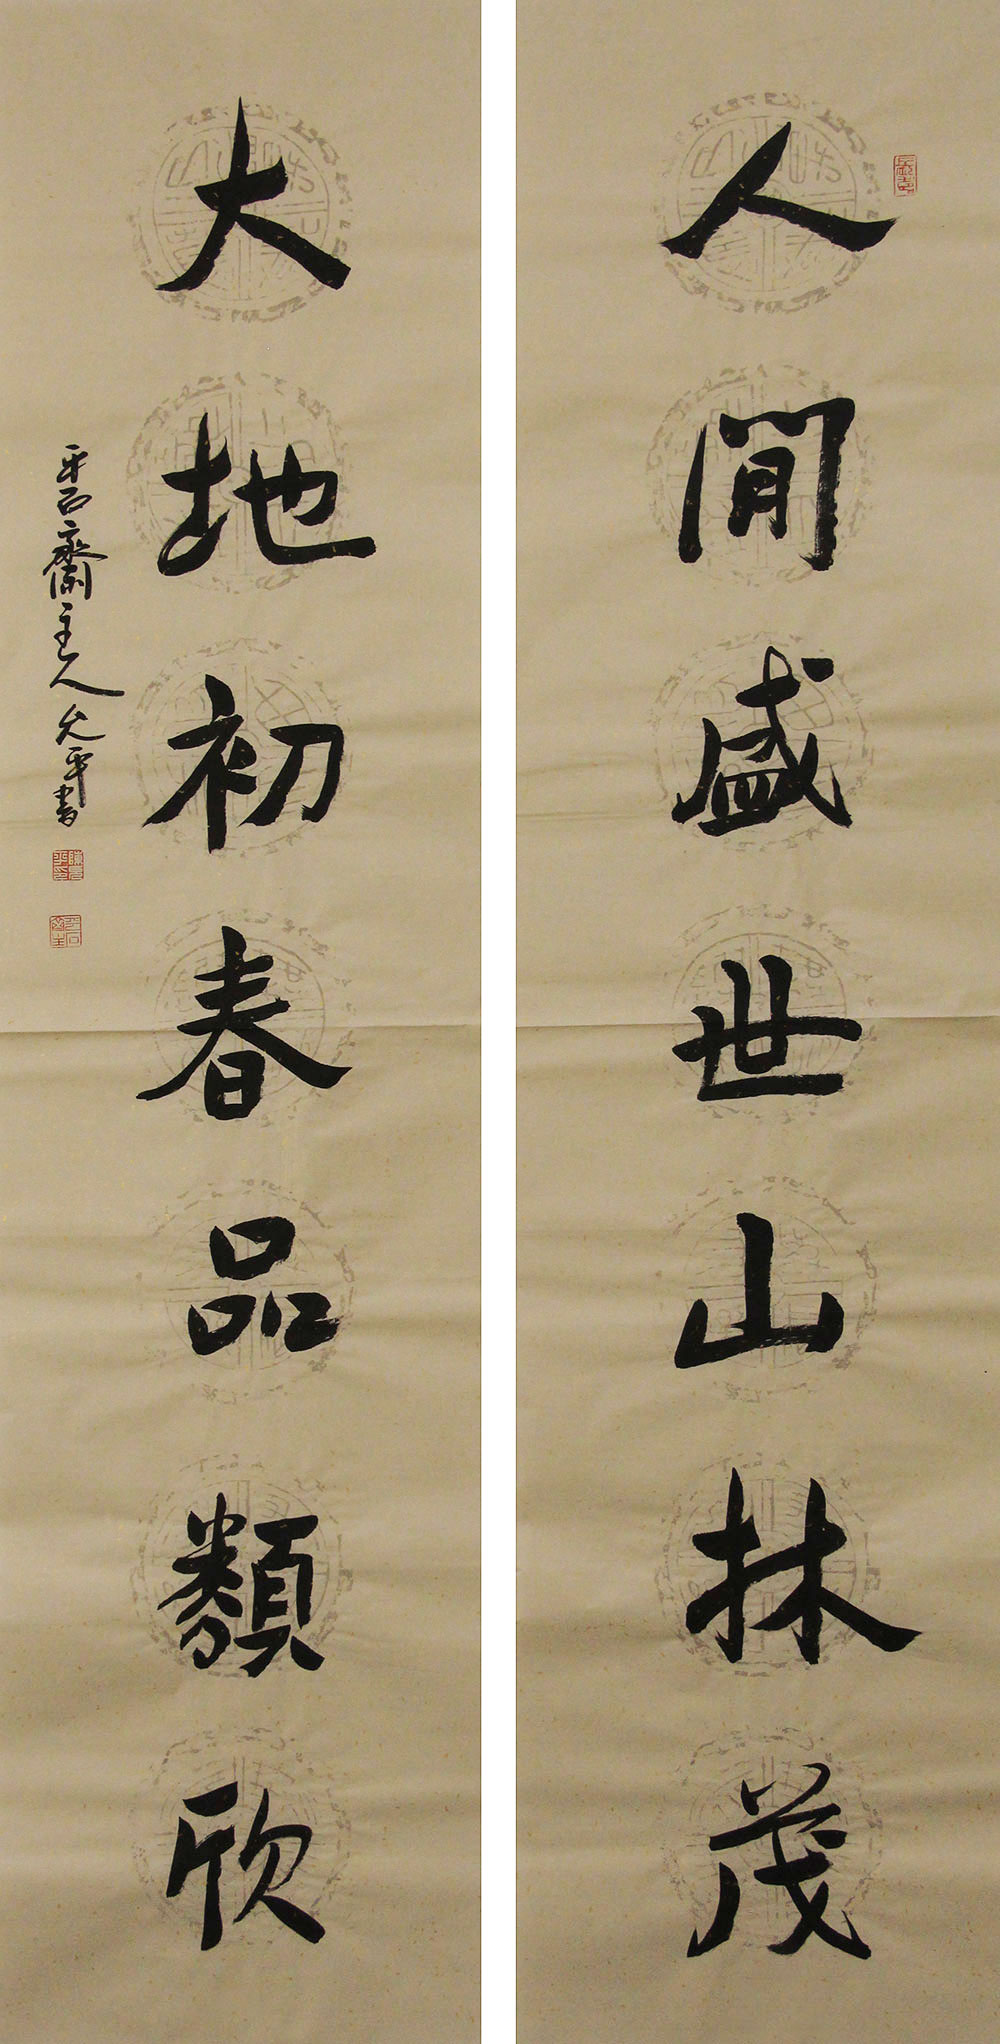 人間盛世山林茂
大地初春品類欣
平石齋主人允平書